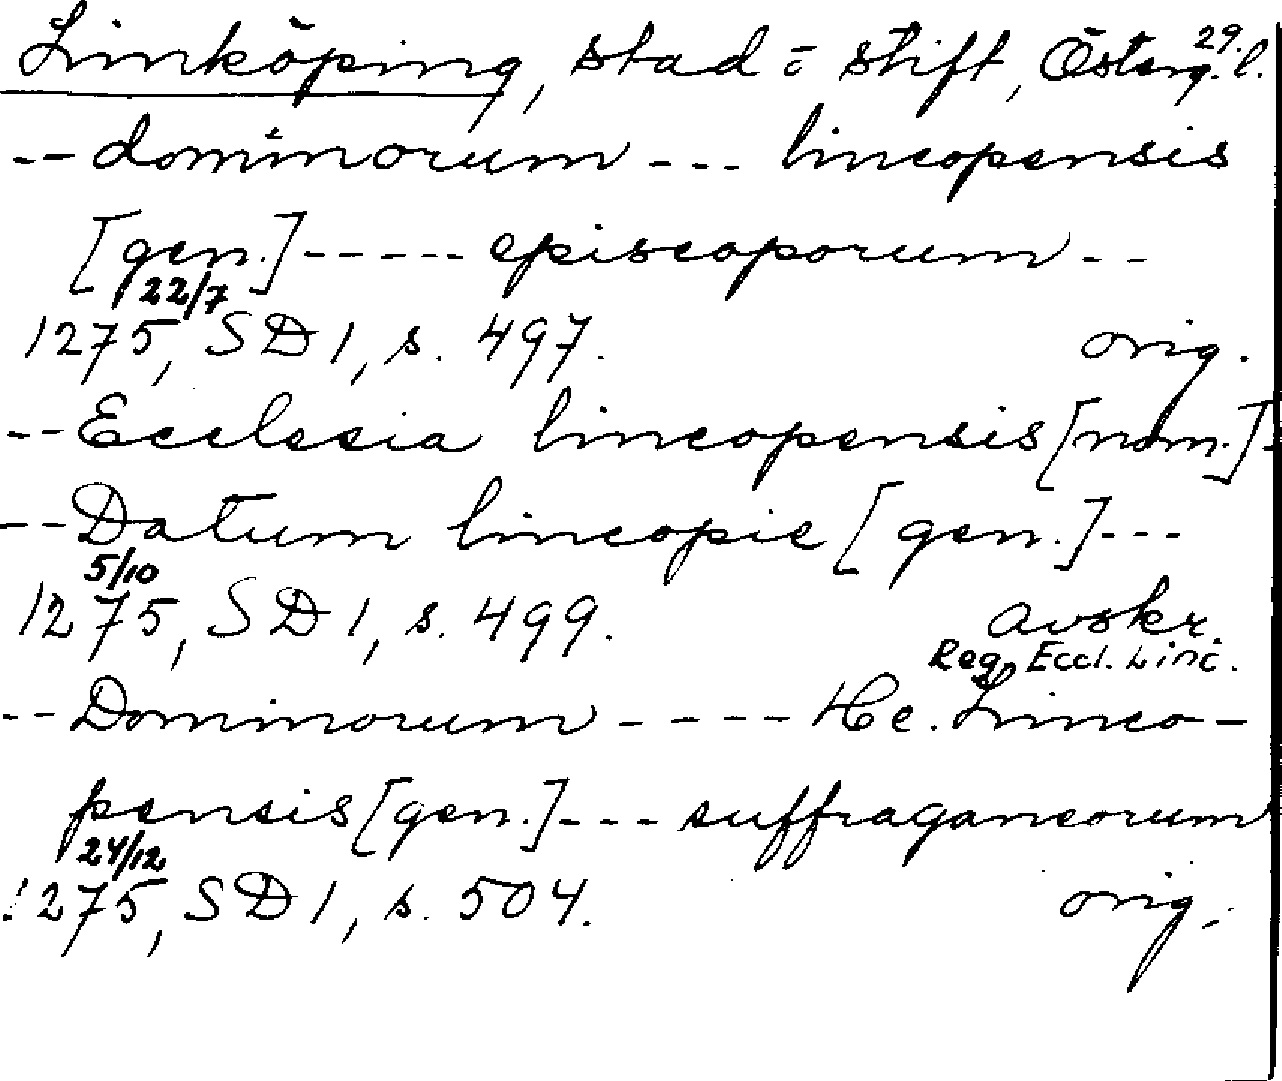 29.
Linköping, stad o stift, Österg. l.
-- dominorum --- lincopensis
[gen.] ----- episcoporum --
22/7
1275, SD 1, s. 497. orig.
-- Ecclesia lincopensis [nom.] -
-- Datum lincopie [gen.] ---
5/10
1275, SD 1, s. 499. avskr.
Reg. Eccl. Linc.
-- Dominorum ---- Linco-
pensis [gen.] --- suffraganeorum
24/12
1275, SD 1, s. 504. orig.